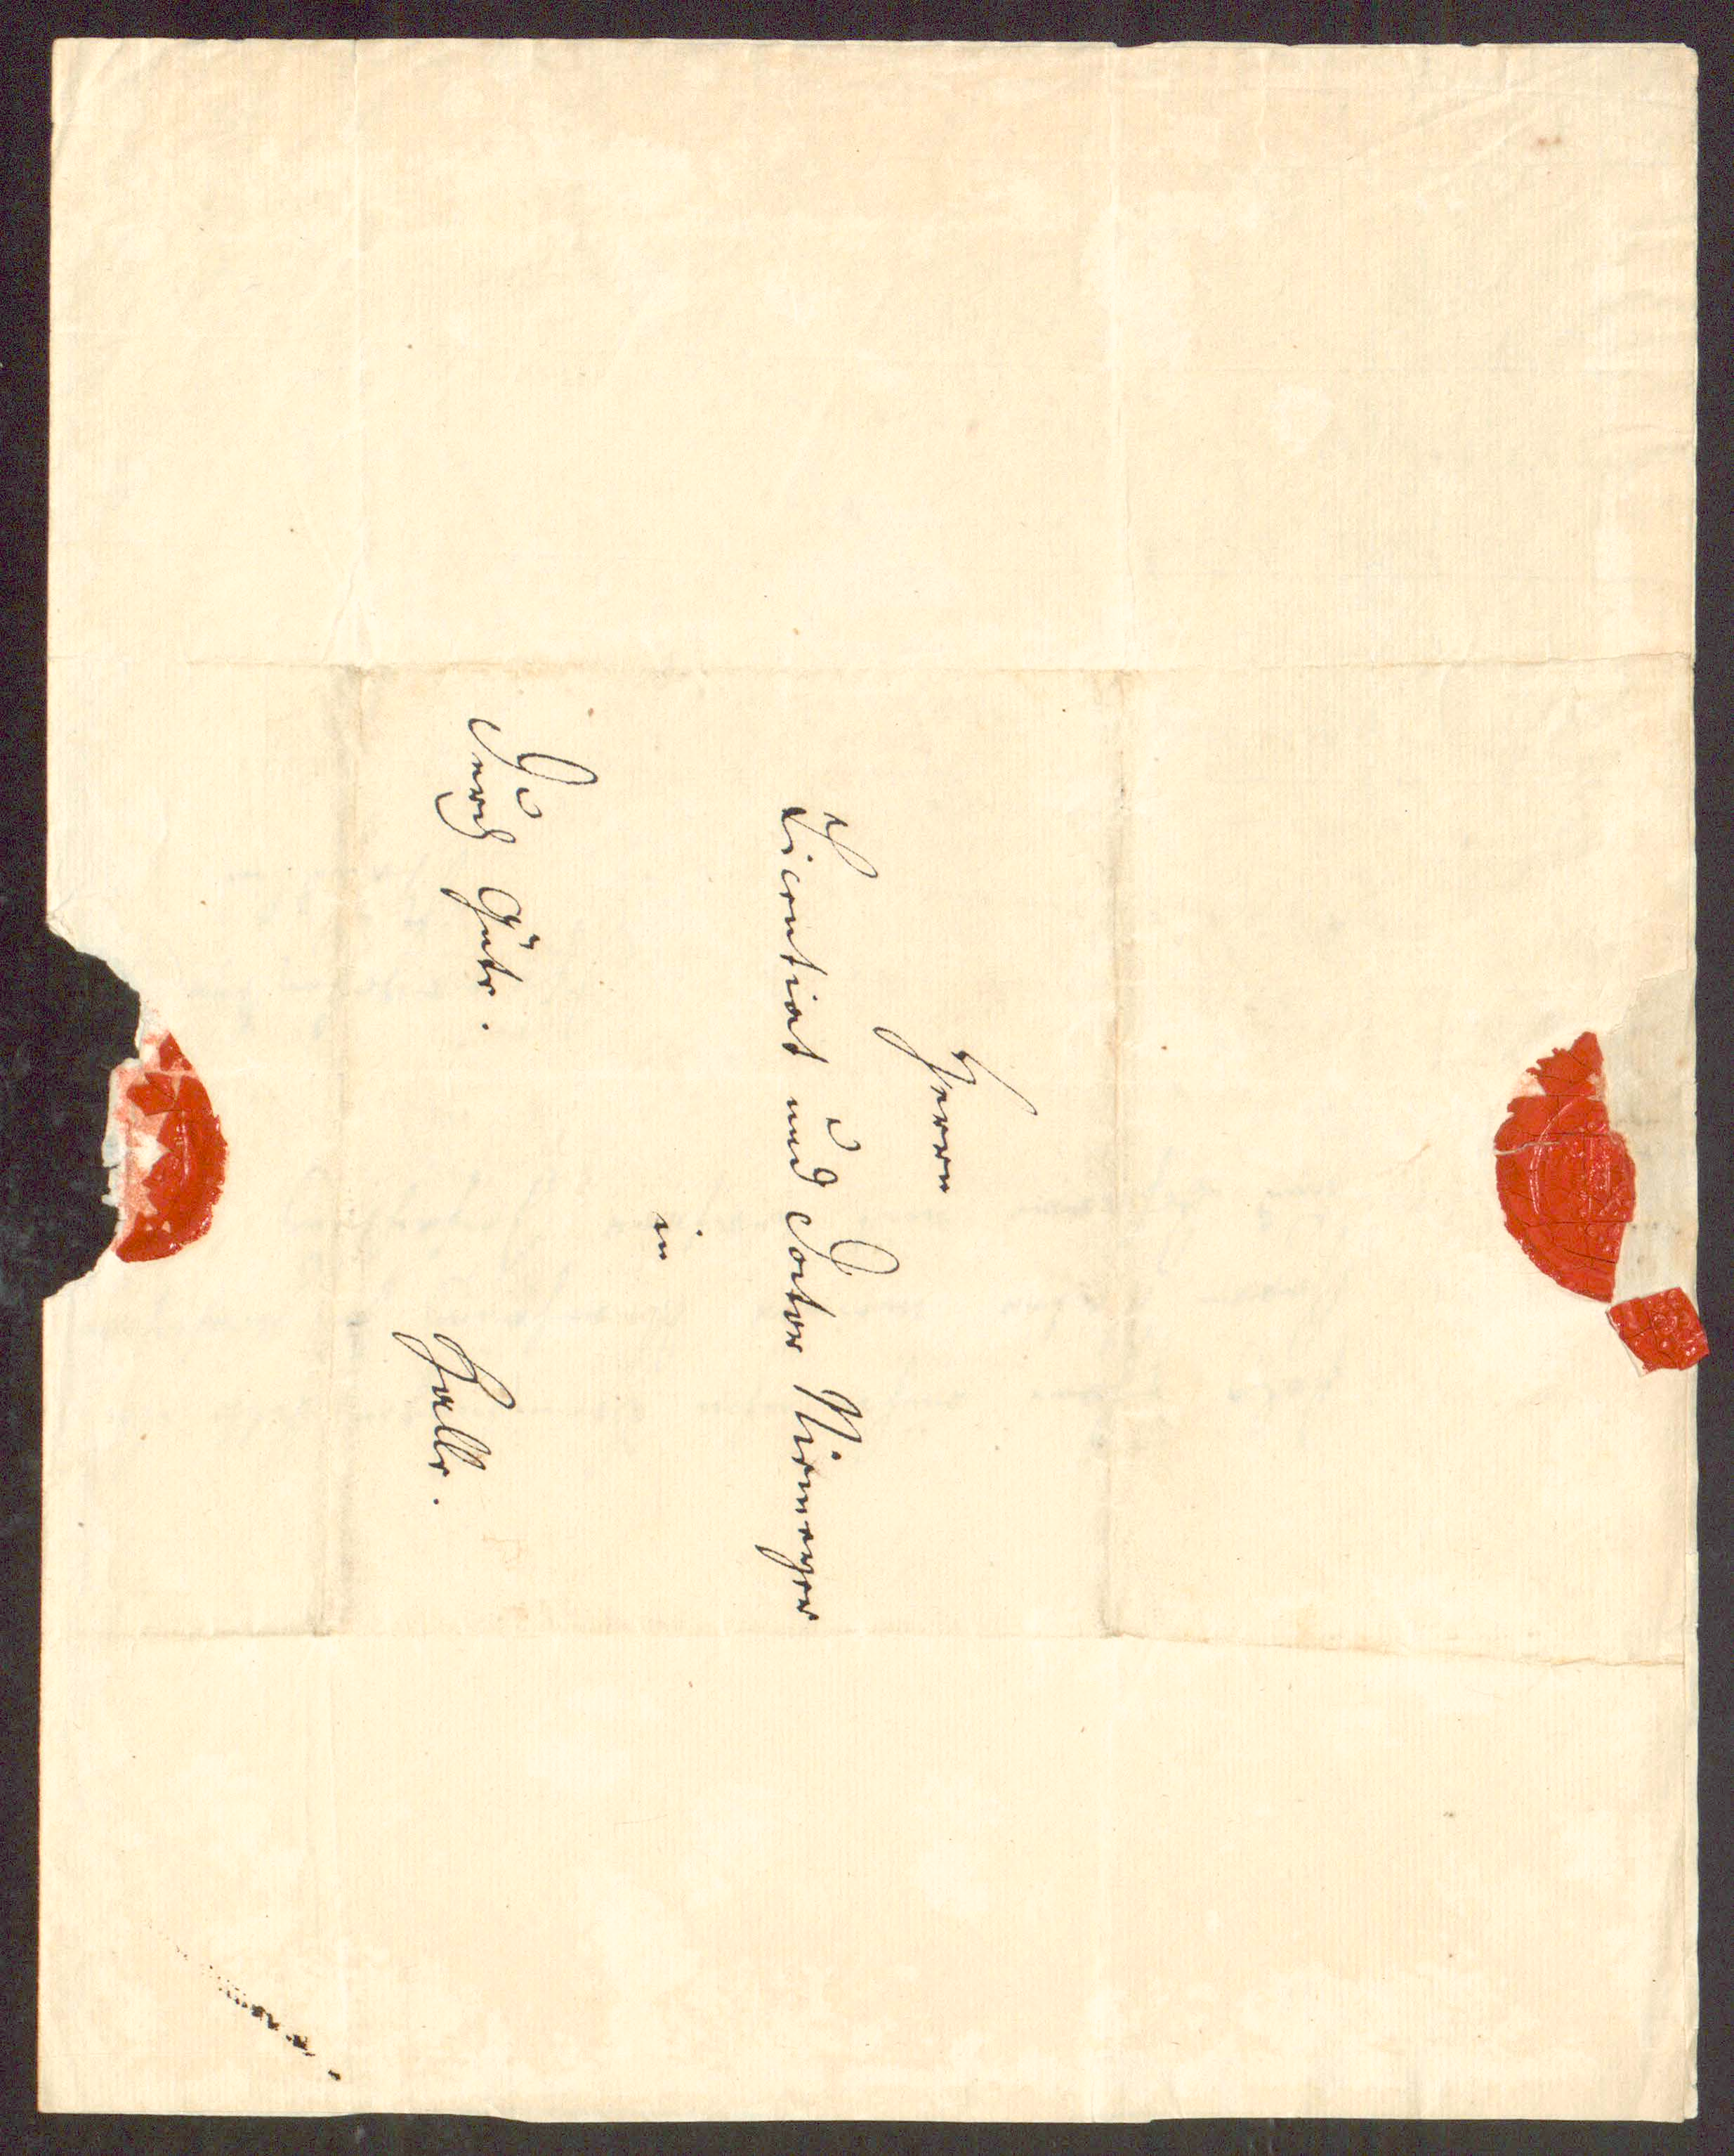 Herrn
Licentiat und Doctor Niemeyer
in
Durch Güte.
Halle.